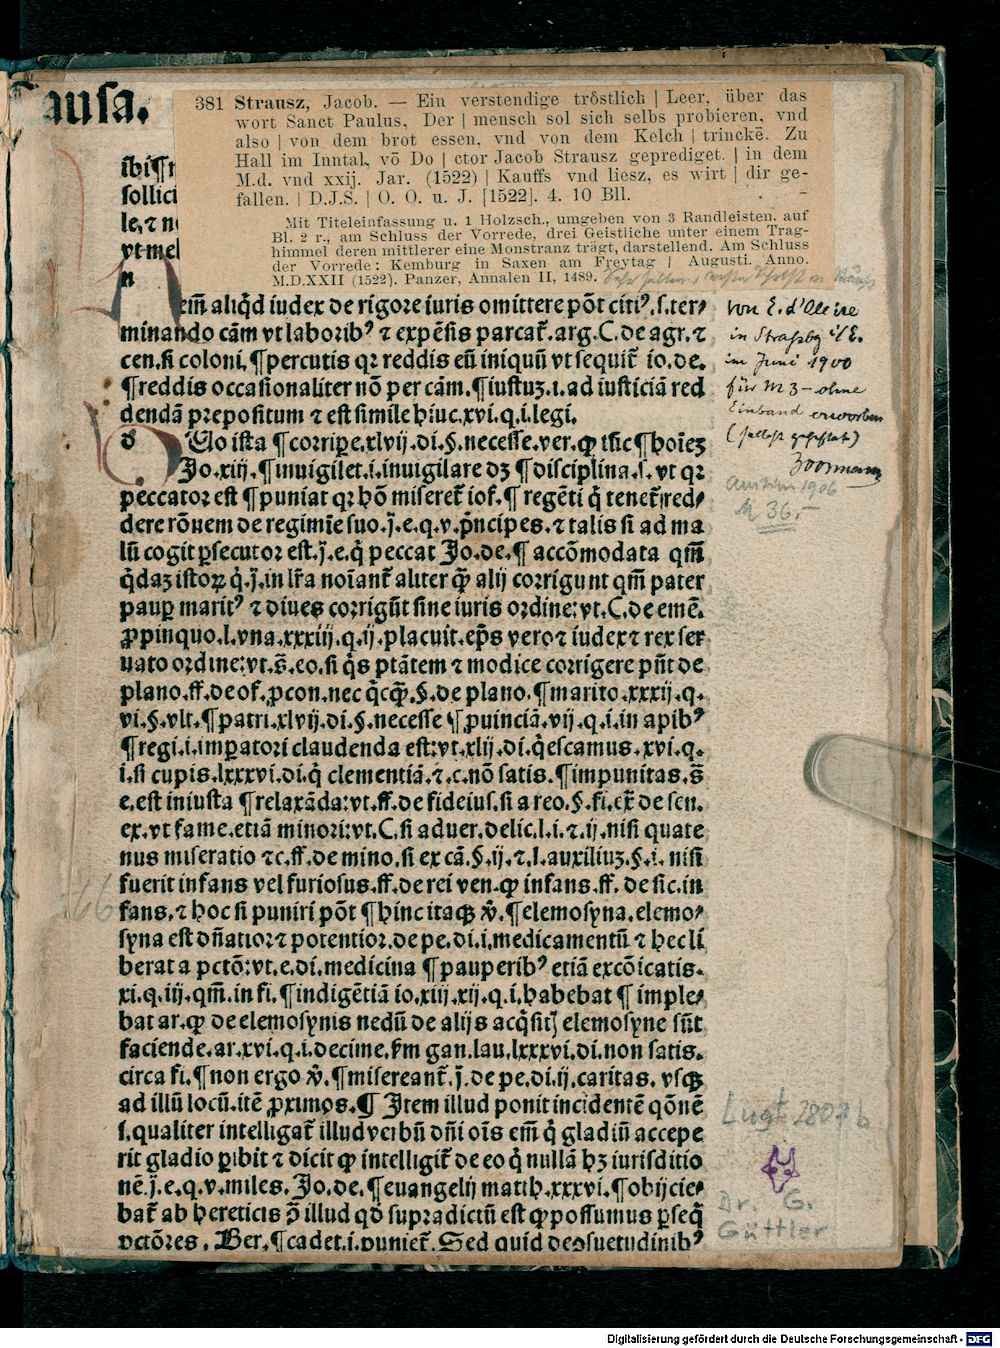 ausa.
381 Strausz, Jacob. — Ein verstendige tröstlich | Leer, über das
wort Sanct Paulus, Der | mensch sol sich selbs probieren, vnd
also | von dem brot essen, vnd von dem Kelch | trinckē. Zu
Hall im Inntal, vō Do | ctor Jacob Strausz geprediget. | in dem
M.d. vnd xxij. Jar. (1522) | Kauffs vnd liesz, es wirt | dir ge-
fallen. | D.J.S. | O. O. u. J. [1522]. 4. 10 Bll.
Mit Titeleinfassung u. 1 Holzsch., umgeben von 3 Randleisten, auf
Bl. 2 r., am Schluss der Vorrede, drei Geistliche unter einem Trag-
himmel deren mittlerer eine Monstranz trägt, darstellend. Am Schluss
der Vorrede: Kemburg in Saxen am Freytag | Augusti. Anno.
M.D.XXII (1522). Panzer, Annalen II, 1489.
sollici
le,⁊ n
vt mel
n
em̄ aliq̇d iudex de rigore iuris omittere pōt citiꝰ.s.ter⸗
minando cām vt laboribꝰ ⁊ expēsis parcat̄.arg.C.de agr.⁊
cen.si coloni.¶percutis qꝛ reddis eū iniquū vt sequit̄ io.de.
¶reddis occasionaliter nō per cām.¶iustuꝫ.i.ad iusticiā red
dendā prepositum ⁊ est simile huic.xvi.q.i.legi.
d
ista ¶corripe.xlvij.di.§.necesse.ver.ꝙ tūc ¶hoīeꝫ
Jo.xiij.¶inuigilet.i.inuigilare dꝫ ¶disciplina.s.vt qꝛ
peccator est ¶puniat qꝛ hō miseret̄ ios.¶regēti q̇ tenet̄ red⸗
dere rōnem de regimīe suo.j̄.e.q.v.p̄ncipes.⁊ talis si ad ma
lū cogit ꝑsecutor est.j̄.e.q̇ peccat Jo.de.¶accōmodata qm̄
q̇daꝫ istoꝝ q̇.j̄.in lr̄a noīant̄ aliter ꝙ̄ alij corrigunt qm̄ pater
pauꝑ maritꝰ ⁊ diues corrigūt sine iuris ordine:vt.C.de emē.
ꝓpinquo.l.vna.xxxiij.q.ij.placuit.ep̄s vero ⁊ iudex ⁊ rex ser
uato ordine:vt.s̄.eo.si q̇s ptātem ⁊ modice corrigere pn̄t de
plano.ff.de of.ꝓcon.nec q̇cꝙ̄.§.de plano.¶marito.xxxij.q.
vi.§.vlt.¶patri.xlvij.di.§.necesse ¶ꝓuinciā.vij.q.i.in apibꝰ
¶regi.i.imꝑatori claudenda est:vt.xlij.di.q̇escamus.xvi.q.
i.si cupis.lxxxvi.di.q̇ clementiā.⁊.c.nō satis.¶impunitas.s̄
e.est iniusta ¶relaxāda:vt.ff.de fideius.si a reo.§.fi.ex̄ de sen.
ex.vt fame.etiā minori:vt.C.si aduer.delic.l.i.⁊.ij.nisi quate
nus miseratio ⁊c.ff.de mino.si ex cā.§.ij.⁊.l.auxiliuꝫ.§.i.nisi
fuerit infans vel furiosus.ff.de rei ven.ꝙ infans.ff.de sic.in
fans.⁊ hoc si puniri pōt ¶hinc itaqꝫ v̇.¶elemosyna.elemo⸗
syna est dn̄atior ⁊ potentior.de pe.di.i.medicamentū ⁊ hec li
berat a pctō:vt.e.di.medicina ¶pauperibꝰ etiā excōicatis.
xi.q.iij.qm̄.in fi.¶indigētiā io.xiij.xij.q.i.habebat ¶imple⸗
bat ar.ꝙ de elemosynis nedū de alijs acq̇sitꝭ elemosyne sūt
faciende.ar.xvi.q.i.decime.fm gan.lau.lxxxvi.di.non satis.
circa fi.¶non ergo v̇.¶misereant̄.j̄.de pe.di.ij.caritas.vsqꝫ
ad illū locū.itē ꝓximos.¶Item illud ponit incidentē qōnē
s.qualiter intelligat̄ illud vcibū dn̄i oīs em̄ q̇ gladiū accepe
rit gladio ꝑibit ⁊ dicit ꝙ intelligit̄ de eo q̇ nullā hꝫ iurisditio
nē.j̄.e.q.v.miles.Jo.de.¶euangelij matth.xxxvi.¶obijcie⸗
bat̄ ab hereticis ꝯ̄ illud qd̄ supradictū est ꝙ possumus ꝑseq̇
pctōres. Ber.¶cadet.i.puniet̄. Sed quid de suetudinibꝰ
von E. d'Oleire
in Straßbg i/E.
im Juni 1900
für M 3 – ohne
Einband erworben
1906
M 36,–
166
2807 b
Dr. G.
Güttler
Digitalisierung gefördert durch die Deutsche Forschungsgemeinschaft - DFG